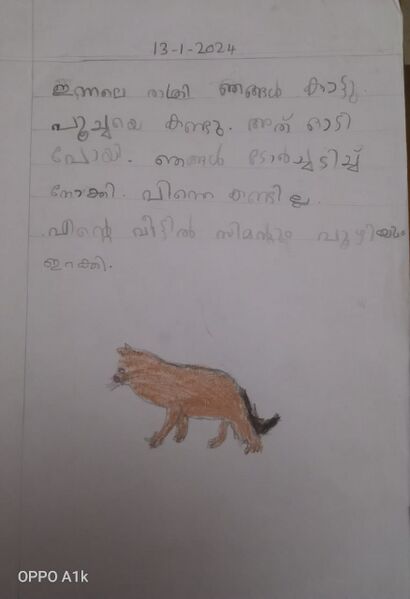 13-1-2024
ഇന്നലെ രാത്രി ഞങ്ങൾ കാട്ടു
പൂച്ചയെ കണ്ടു. അത് ഓടി
പോയി. ഞങ്ങൾ ടോർച്ചടിച്ച്
നോക്കി. പിന്നെ കണ്ടില്ല.
പിന്റെ വീട്ടിൽ സിമന്റും പൂഴിയും
ഇറക്കി.
OPPO A1k